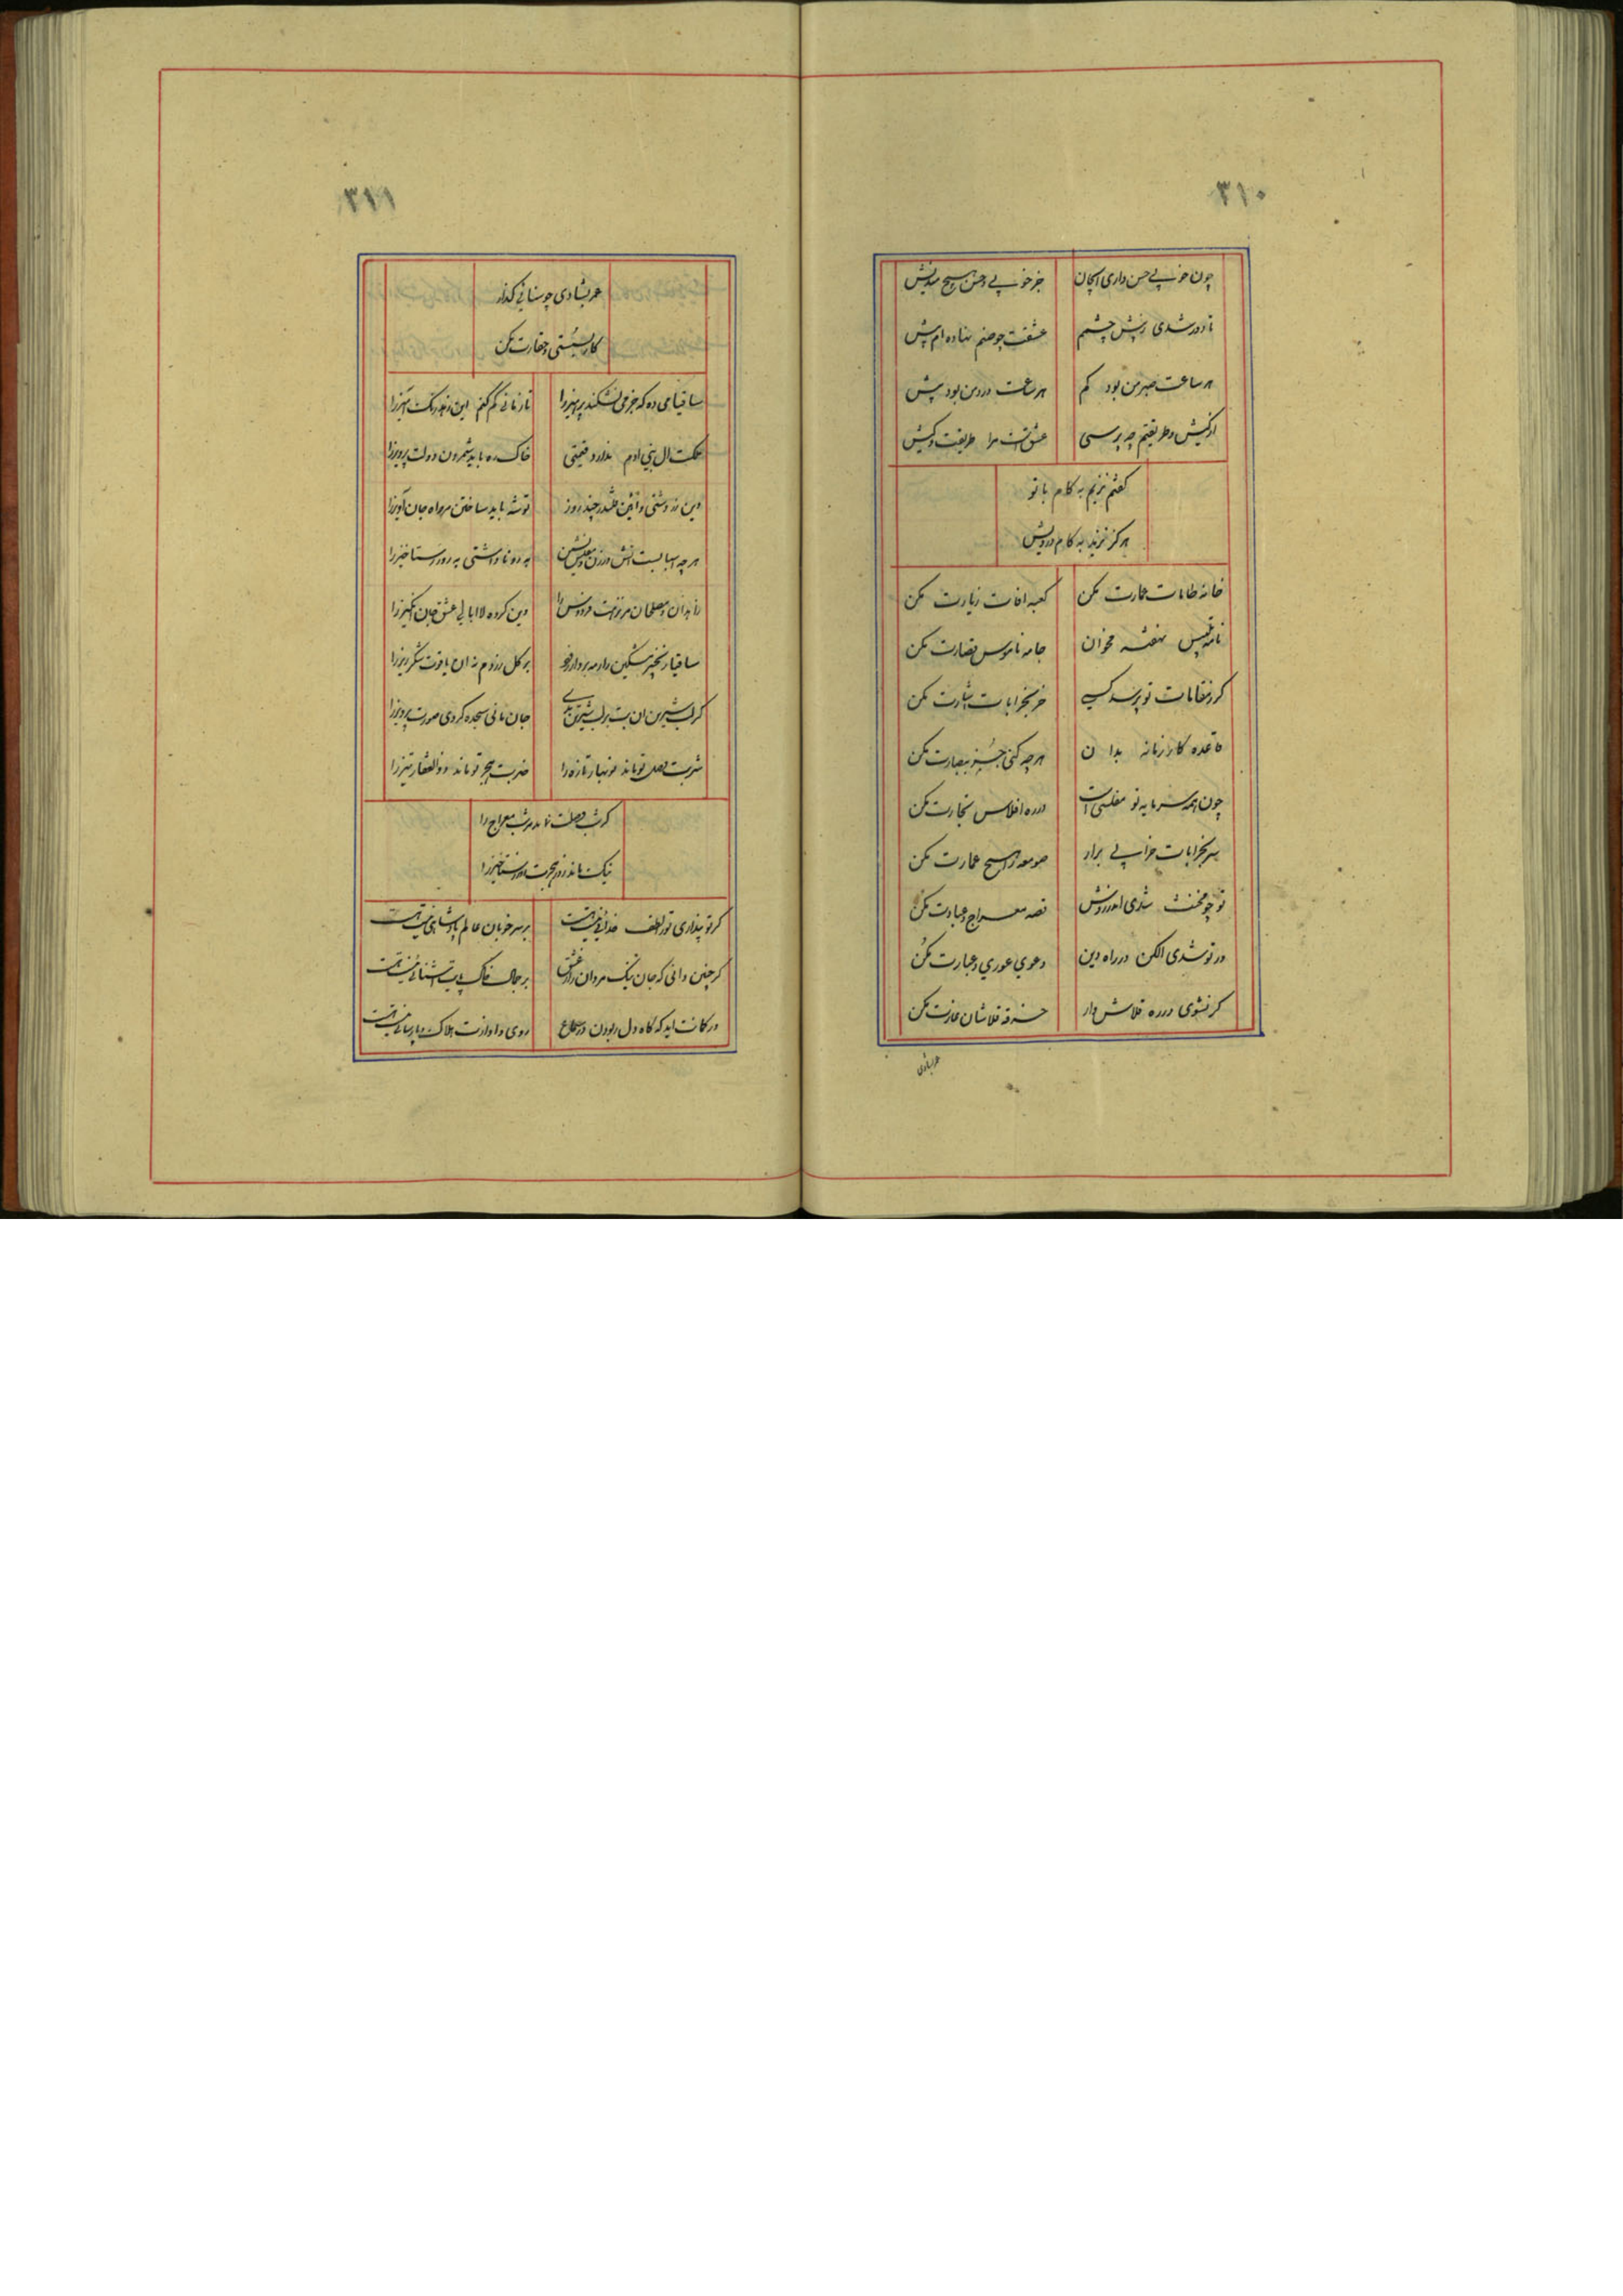 ۳۱۰
چون خوبی حسن داری ای جان جز خوبی و حسن هیچ مندیش
تا دور شدی ز پیش چشمم عشقت چو صنم نهاده ام پیش
هر ساعت صبر من بود کم هر ساعت درد من بود بیش
از کیش و طریقتم چه پرسی عشق است مرا طریقت و کیش
گفتم نزیم به کام با تو
هرگز نزید به کام درویش
خانه طامات عمارت مکن کعبه افات زیارت مکن
نامه تلبیس نهفته مخوان جامه ناموس قصارت مکن
گر ز مقامات تو پرسد کسی خز بخرابات اشارت مکن
قاعده کار زمانه بدان هر چه کنی جز ببصارت مکن
چون همه سرمایه تو مفلسی است در ره افلاس تجارت مکن
سر بخرابات خرابی برار صومعه را هیچ عمارت مکن
تو چو مخنث شدی اندر روش قصه معراج و عبادت مکن
ور تو شدی الکن در راه دین دعوی عوری و عبارت مکن
گر نشوی در ره قلاش وار خرقه قلاشان غارت مکن
عمر بشادی
۳۱۱
عمر بشادی چو سنائی گذار
کار بسستی و حقارت مکن
ساقیا می ده که جز می نشکند پرهیز را تا زمانی کم کنم این زهد رنگ امیز را
ملکت ال بنی ادم ندارد قیمتی خاک ره باید شمردن دولت پرویز را
دین زردشتی و ائین قلندر چند روز توشه باید ساختن مر راه جان آویز را
هر چه اسبابست اتش در زن و خوش نشین به رو ناداشتی به روز رستاخیز را
زاهدان و مصلحان مر نزهت فردوس را وین گروه لاابالی عشق جان انگیز را
ساقیا زنجیر مشکین را ز مه بردار زود بر گل زردم نه ان یاقوت شکر ریز را
گر لب شیرین ان بت بر لب شیرین بدی جان مانی سجده کردی صورت پرویز را
شربت وصل تو ماند نوبهار تازه را ضربت هجر تو ماند ذوالفقار تیز را
گر شب وصلت نماید مر شب معراج را
نیک ماند روز هجرت روز رستاخیز را
گر تو پنداری تو را لطف خدائی نیست هست بر سر خوبان عالم پادشاهی نیست هست
گر چنین دانی که جان نیک مردان را ز عشق بر جمال خاک پایت اشنائی نیست هست
ور گمانت اید که گاه دل ربودن در سماع روی و اوازت هلاک پارسائی نیست هست